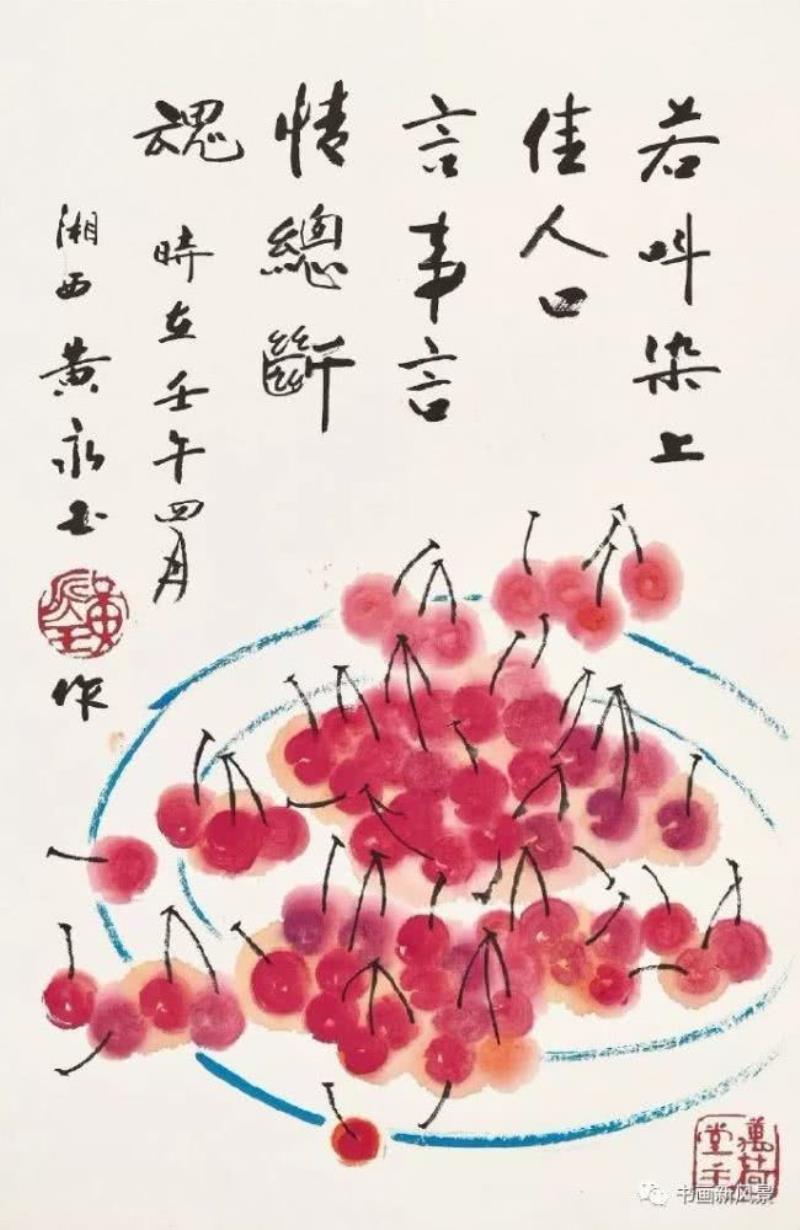 若叫染上
佳人口
言事言
情總斷
魂
時在壬午四月
湘西黄永玉
作
萬荷堂主
书画新风景